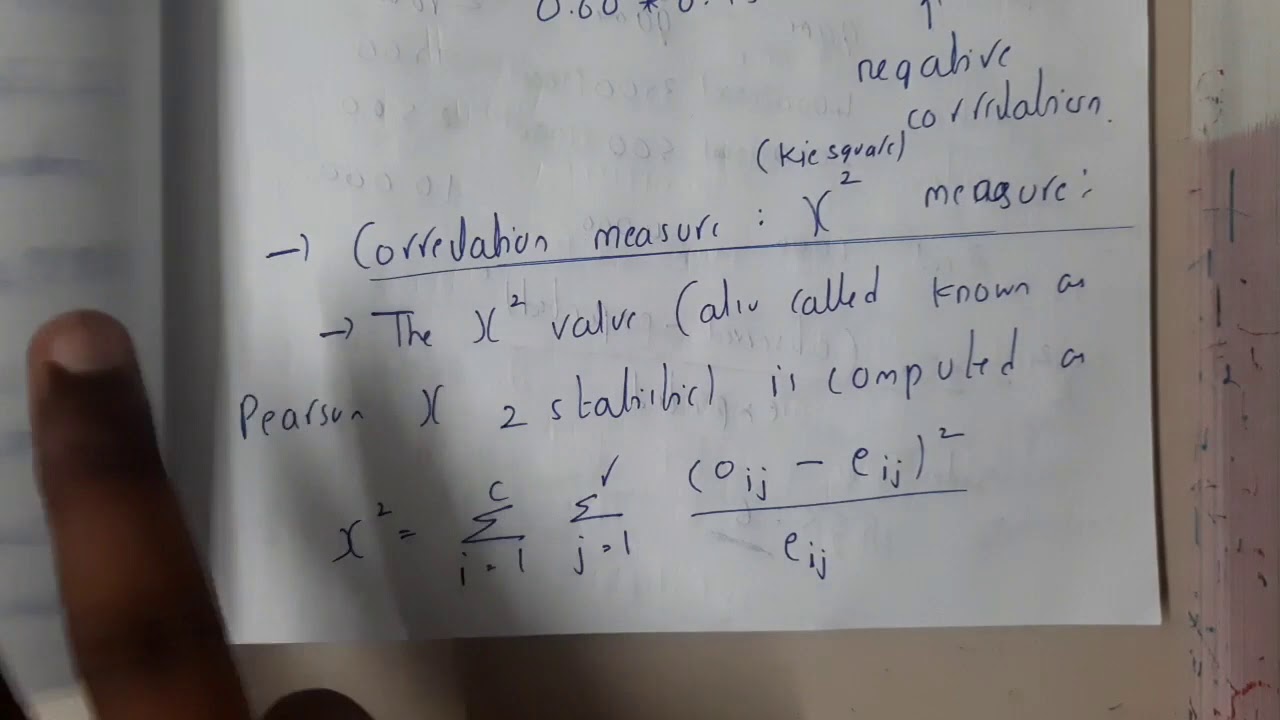 0.60 *
negative
correlation.
(Kie square)
→ Correlation measure : X² measure:
→ The X² value (also called known as
Pearson X 2 statistic) is computed as
x² = c∑i=1 r∑j=1 (oij - eij)² / eij